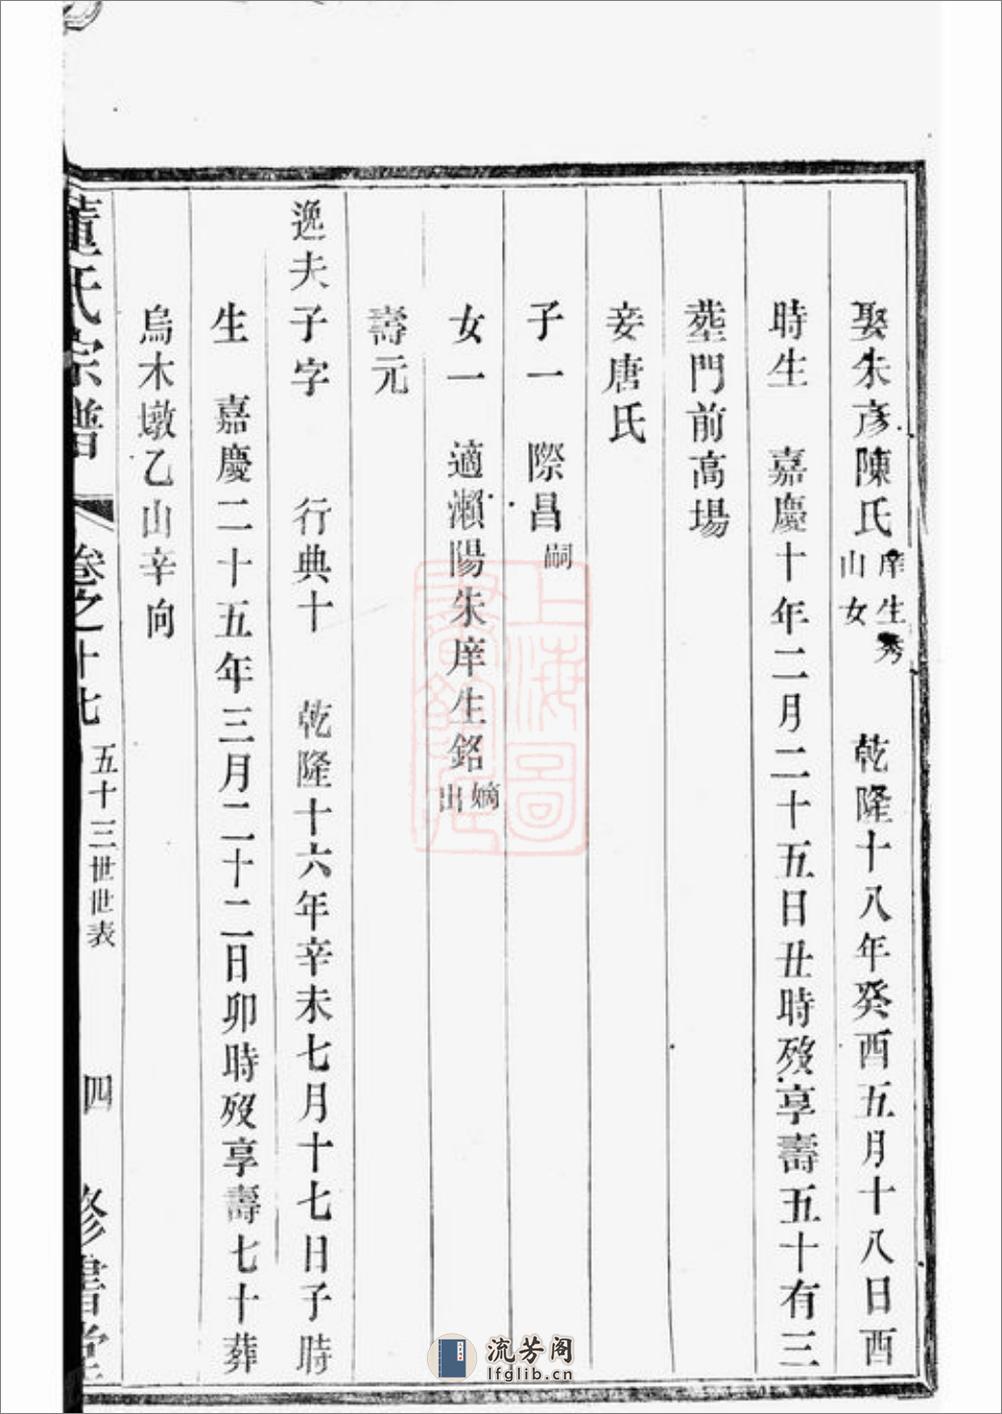 娶朱彥陳氏庠生秀山女　乾隆十八年癸酉五月十八日酉
時生　嘉慶十年二月二十五日丑時歿享壽五十有三
塟門前高場
妾唐氏
子一　際昌嗣
女一　適瀨陽朱庠生銘嫡出
壽元
逸夫子字　行典十　乾隆十六年辛未七月十七日子時
生　嘉慶二十五年三月二十二日卯時歿享壽七十葬
烏木墩乙山辛向
董氏宗譜　卷之十七　五十三世世表　四　修書堂
上海圖書館藏
流芳阁
lfglib.cn